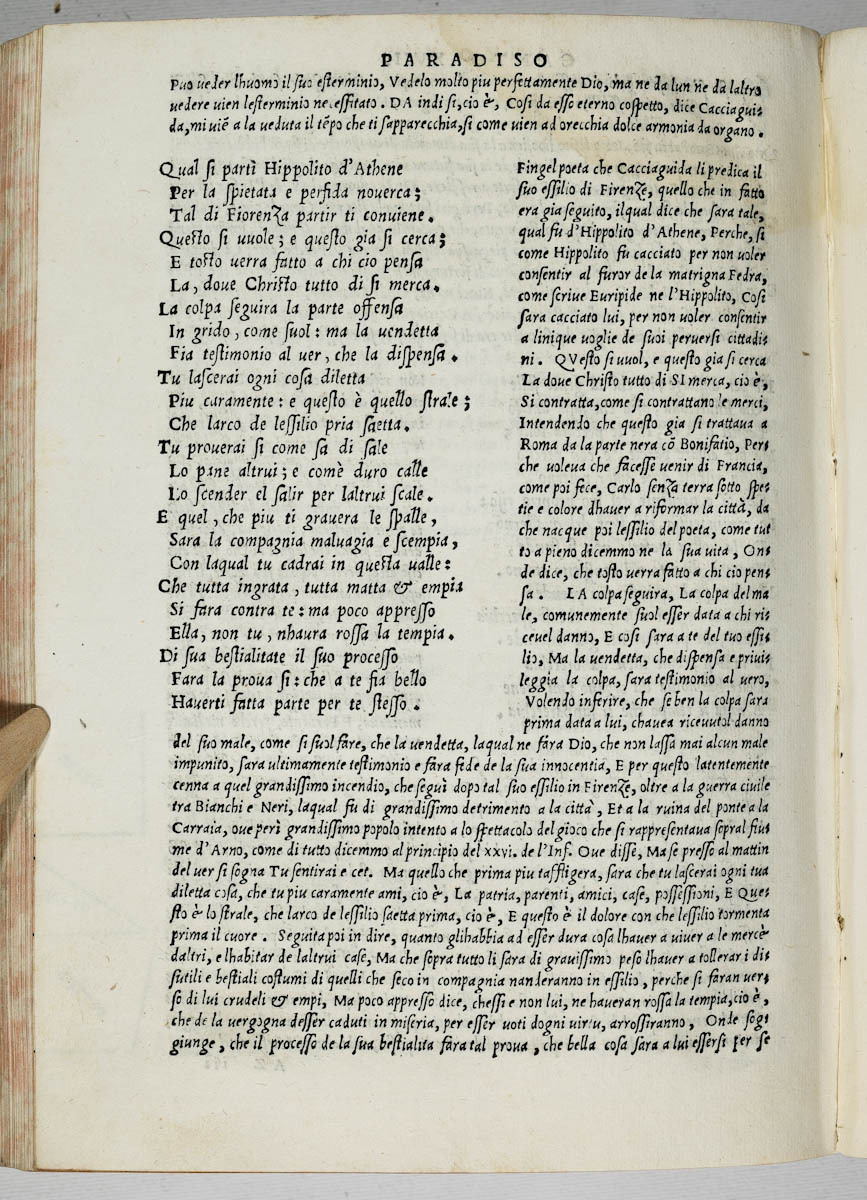 PARADISO
Puo ueder lhuomo il suo esterminio, Vedelo molto piu perfettamente Dio, ma ne da lun ne da laltro
uedere uien lesterminio necessitato. DA indi si, cio è, Cosi da esso eterno cospetto, dice Cacciagui-
da, mi uiẽ a la ueduta il tẽpo che ti sapparecchia, si come uien ad orecchia dolce armonia da organo.
Qual si partì Hippolito d'Athene
Per la spietata e perfida nouerca;
Tal di Fiorenza partir ti conuiene.
Questo si uuole; e questo gia si cerca;
E tosto uerra fatto a chi cio pensa
La, doue Christo tutto di si merca.
La colpa seguira la parte offensa
In grido, come suol: ma la uendetta
Fia testimonio al uer, che la dispensa.
Tu lascerai ogni cosa diletta
Piu caramente: e questo è quello strale;
Che larco de lessilio pria saetta.
Tu prouerai si come sa di sale
Lo pane altrui; e com'è duro calle
Lo scender el salir per laltrui scale.
E quel, che piu ti grauera le spalle,
Sara la compagnia maluagia e scempia,
Con laqual tu cadrai in questa ualle:
Che tutta ingrata, tutta matta & empia
Si fara contra te: ma poco appresso
Ella, non tu, nhaura rossa la tempia.
Di sua bestialitate il suo processo
Fara la proua si: che a te fia bello
Hauerti fatta parte per te stesso.
Fingel poeta che Cacciaguida li predica il
suo essilio di Firenze, quello che in fatto
era gia seguito, ilqual dice che sara tale,
qual fu d'Hippolito d'Athene, Perche, si
come Hippolito fu cacciato per non uoler
consentir al furor de la matrigna Fedra,
come scriue Euripide ne l'Hippolito, Cosi
sara cacciato lui, per non uoler consentir
a linique uoglie de suoi peruersi cittadi-
ni. QVesto si uuol, e questo gia si cerca
La doue Christo tutto di SI merca, cio è,
Si contratta, come si contrattano le merci,
Intendendo che questo gia si trattaua a
Roma da la parte nera cõ Bonifatio, Per-
che uoleua che facesse uenir di Francia,
come poi fece, Carlo senza terra sotto spe-
tie e colore dhauer a riformar la città, da
che nacque poi lessilio del poeta, come tut
to a pieno dicemmo ne la sua uita, On-
de dice, che tosto uerra fatto a chi cio pen-
sa. LA colpa seguira, La colpa del ma
le, comunemente suol esser data a chi ri-
ceuel danno, E cosi sara a te del tuo essi-
lio, Ma la uendetta, che dispensa e priui-
leggia la colpa, sara testimonio al uero,
Volendo inferire, che se ben la colpa sara
prima data a lui, chauea riceuutol danno
del suo male, come si suol fare, che la uendetta, laqual ne fara Dio, che non lassa mai alcun male
impunito, sara ultimamente testimonio e fara fede de la sua innocentia, E per questo latentemente
cenna a quel grandissimo incendio, che seguì dopo tal suo essilio in Firenze, oltre a la guerra ciuile
tra Bianchi e Neri, laqual fu di grandissimo detrimento a la città, Et a la ruina del ponte a la
Carraia, oue perì grandissimo popolo intento a lo spettacolo del gioco che si rappresentaua sopral fiu-
me d'Arno, come di tutto dicemmo al principio del xxvi. de l'Inf. Oue disse, Ma se presso al mattin
del uer si sogna Tu sentirai e cet. Ma quello che prima piu taffligera, sara che tu lascerai ogni tua
diletta cosa, che tu piu caramente ami, cio è, La patria, parenti, amici, case, possessioni, E Que-
sto è lo strale, che larco de lessilio saetta prima, cio è, E questo è il dolore con che lessilio tormenta
prima il cuore. Seguita poi in dire, quanto glihabbia ad esser dura cosa lhauer a uiuer a le mercè
daltri, e lhabitar de laltrui case, Ma che sopra tutto li sara di grauissimo peso lhauer a tollerar i di-
sutili e bestiali costumi di quelli che seco in compagnia nanderanno in essilio, perche si faran uer-
so di lui crudeli & empi, Ma poco appresso dice, chessi e non lui, ne haueran rossa la tempia, cio è,
che de la uergogna desser caduti in miseria, per esser uoti dogni uirtu, arrossiranno, Onde sog-
giunge, che il processo de la sua bestialita fara tal proua, che bella cosa sara a lui essersi per se